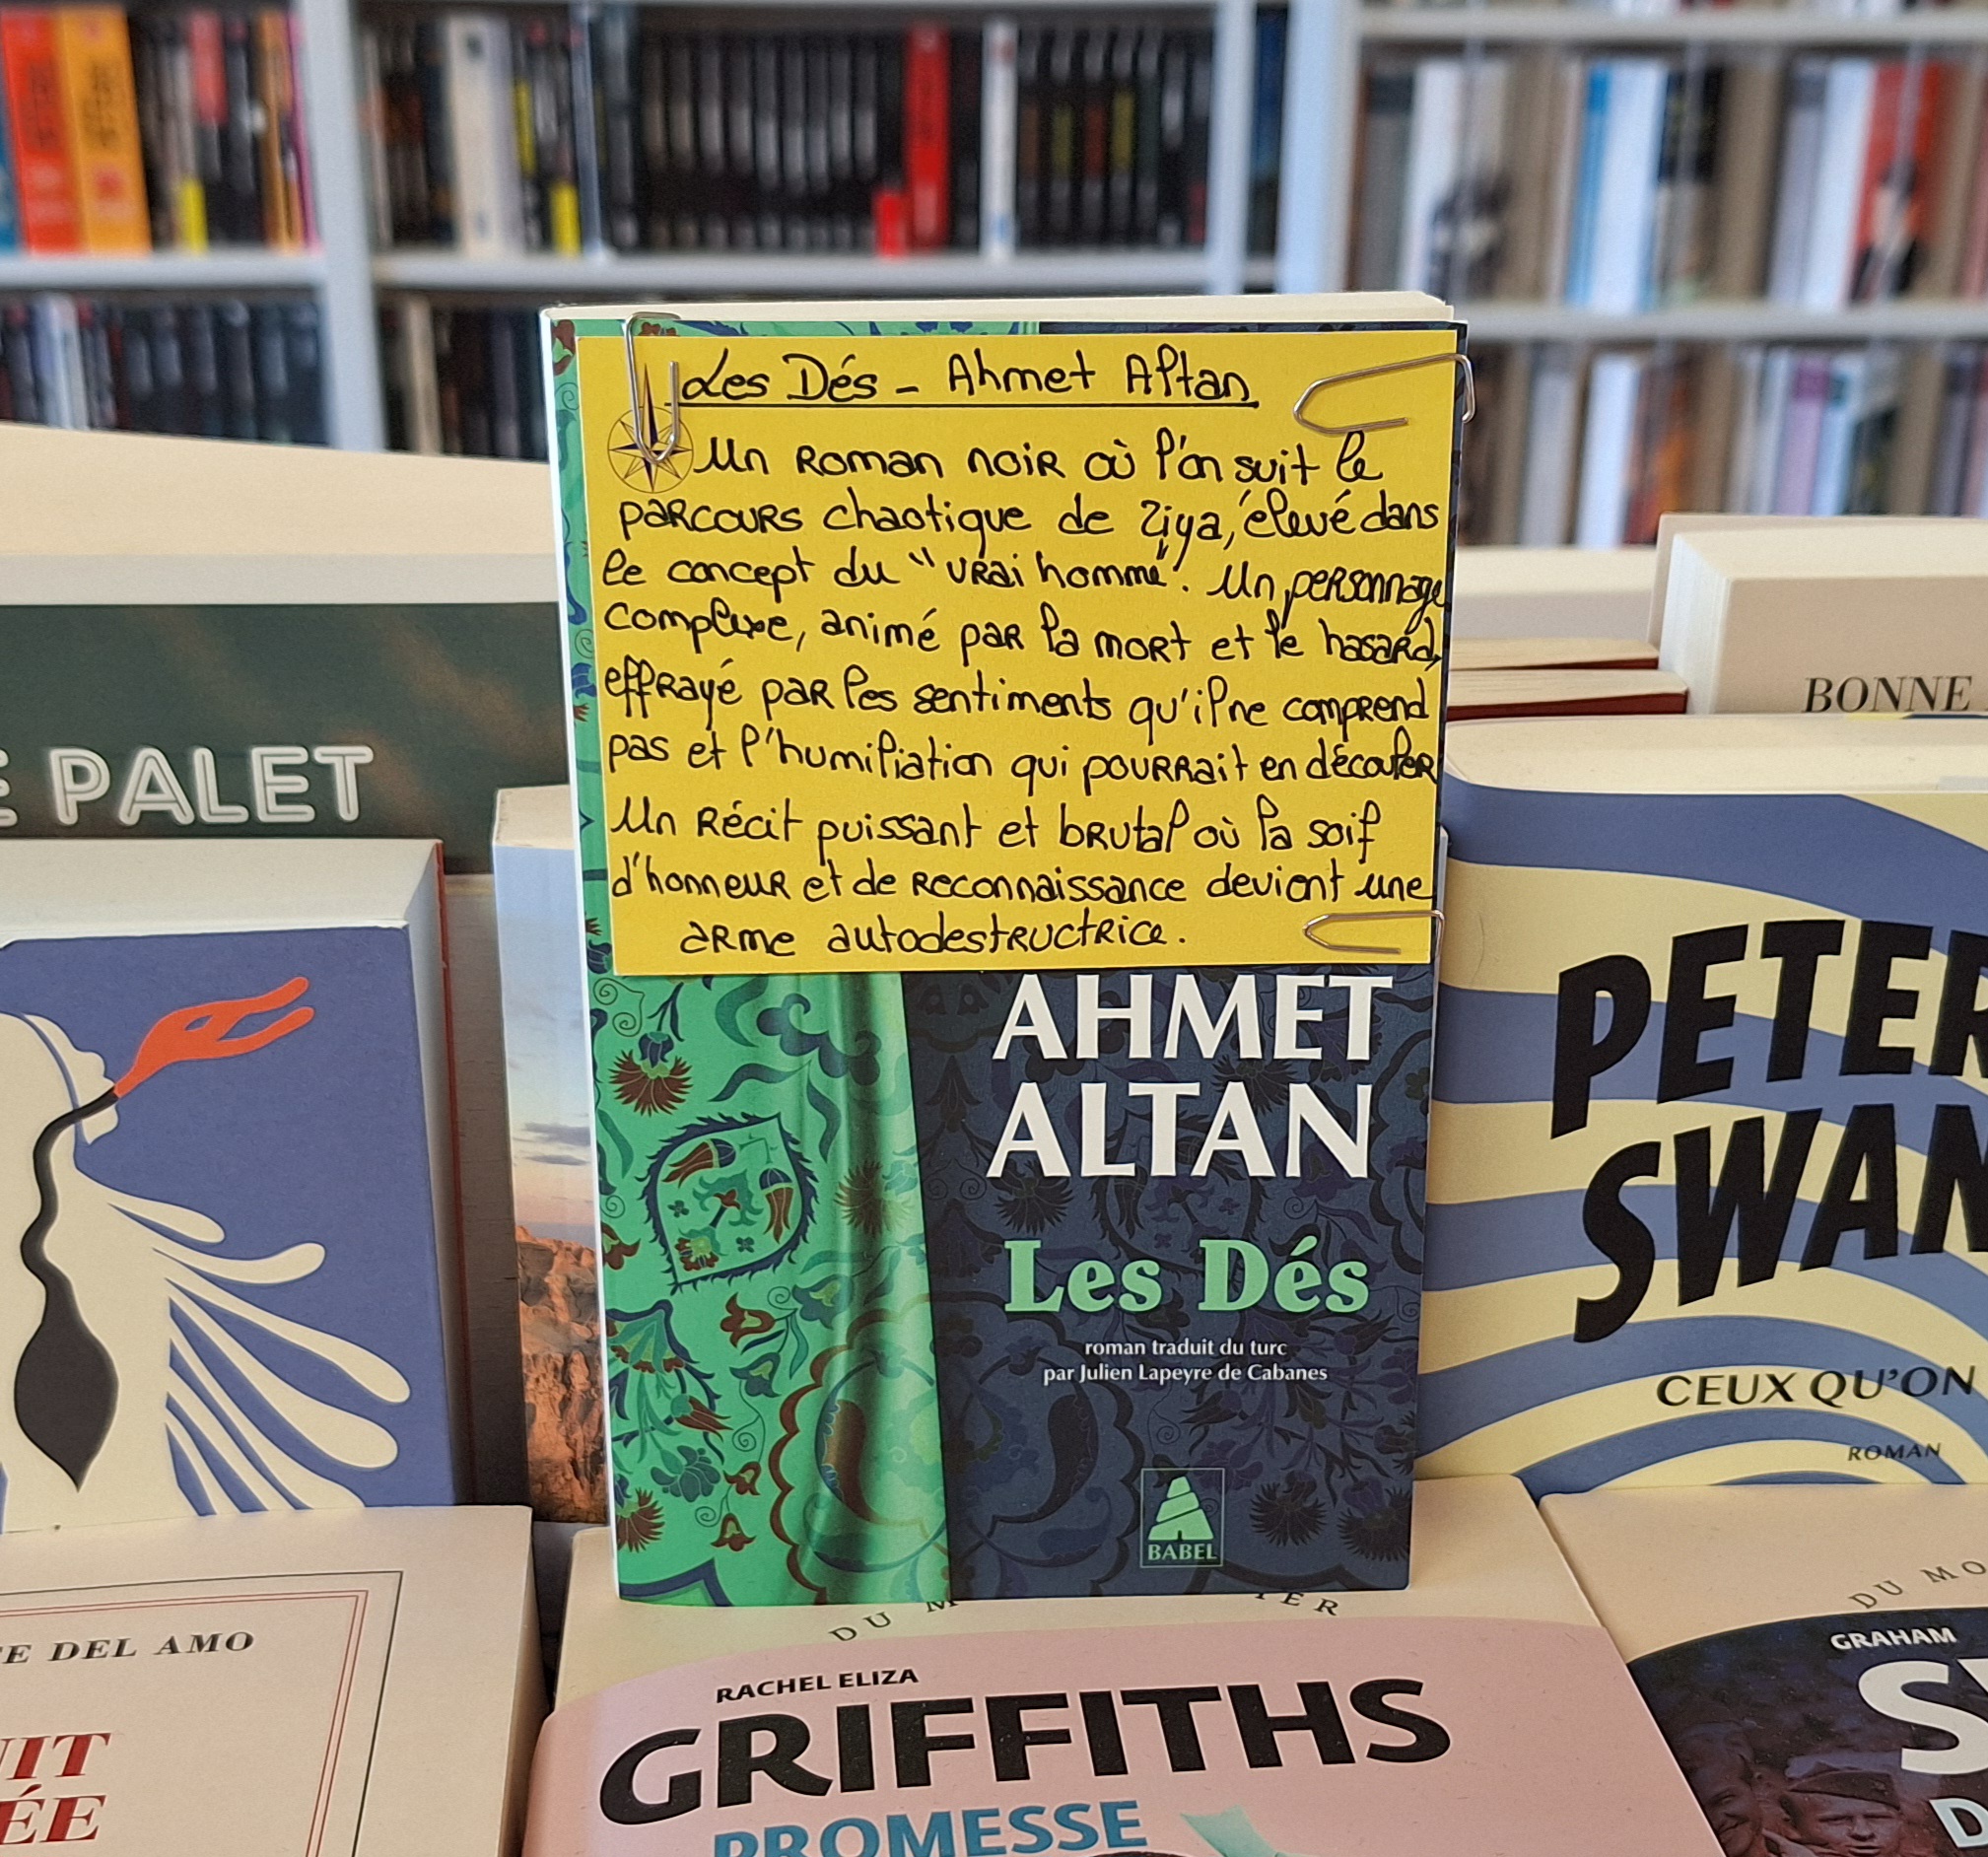 Les Dés - Ahmet Altan
Un roman noir où l'on suit le
parcours chaotique de Ziya, élevé dans
le concept du "vrai homme". Un personnage
complexe, animé par la mort et le hasard,
effrayé par les sentiments qu'il ne comprend
pas et l'humiliation qui pourrait en découler
Un récit puissant et brutal où la soif
d'honneur et de reconnaissance devient une
arme autodestructrice.
AHMET
ALTAN
Les Dés
roman traduit du turc
par Julien Lapeyre de Cabanes
BABEL
E PALET
BONNE
PETER
SWAN
CEUX QU'ON
ROMAN
E DEL AMO
UIT
ÉE
DU M
IER
RACHEL ELIZA
GRIFFITHS
PROMESSE
DU MO
GRAHAM
S
D